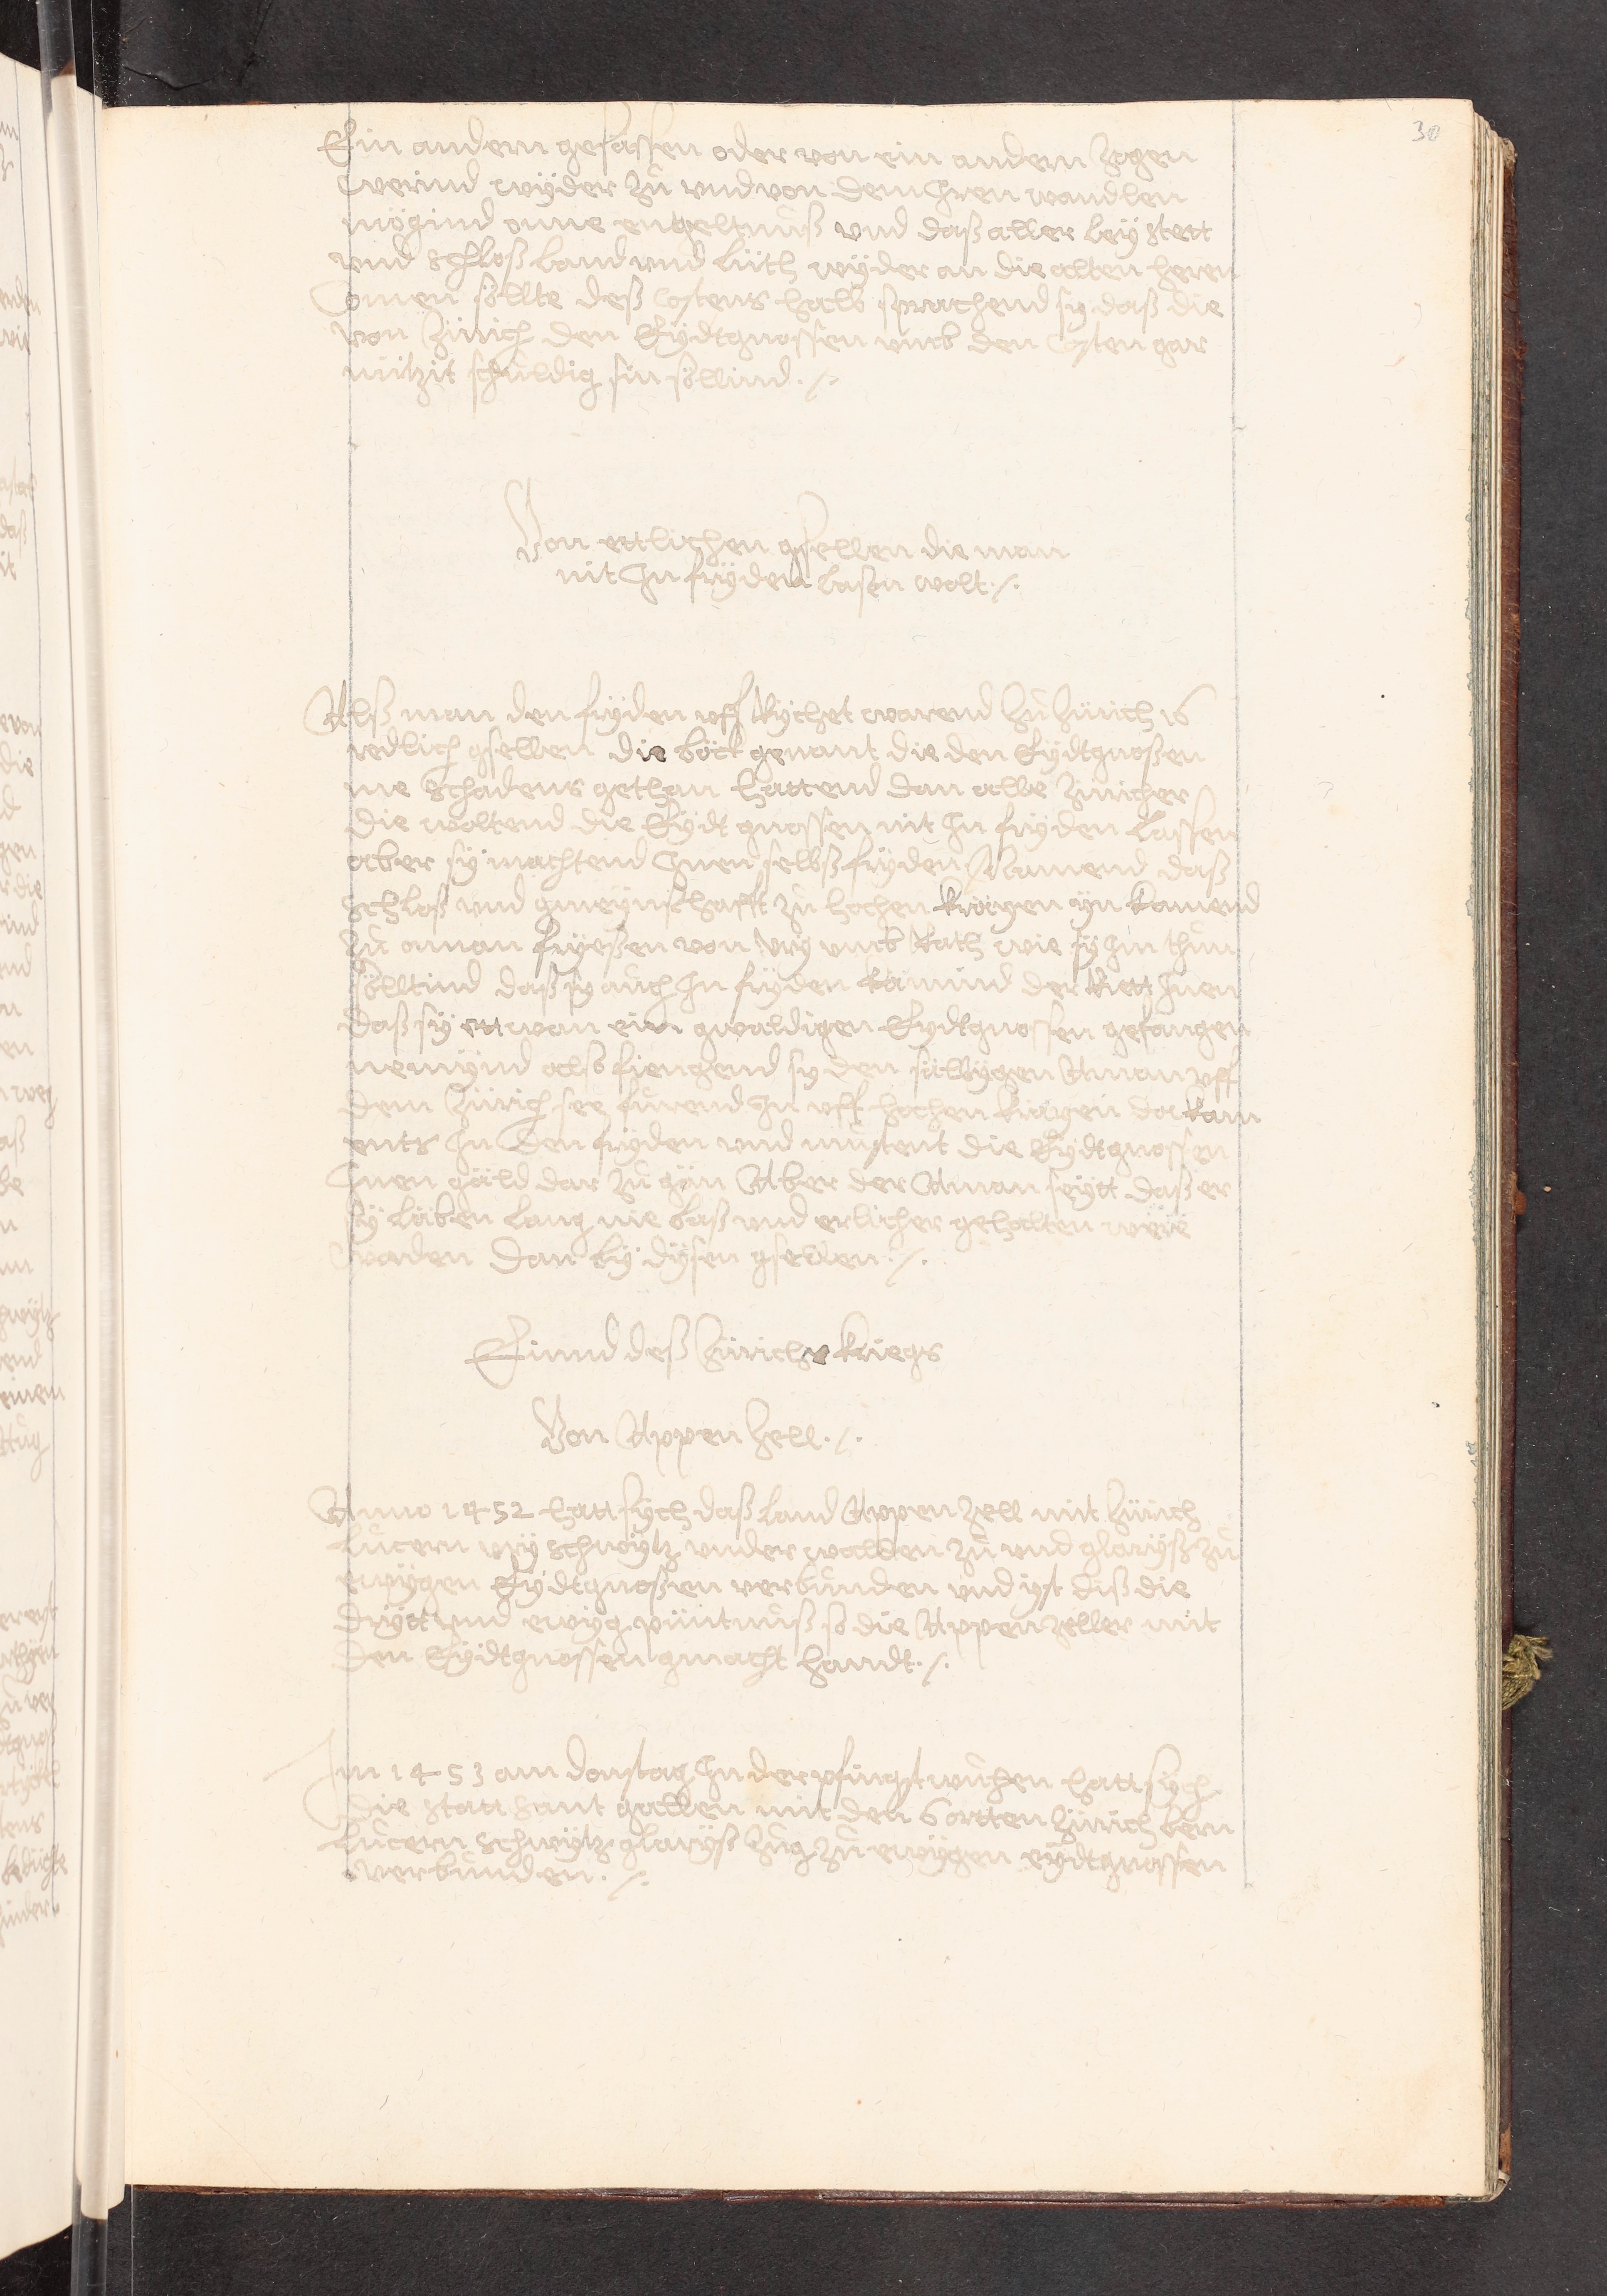 30
Ein andern gesässen oder von ein andern zogen
werind wÿder zů vnd von dem Jren wandlen
mögind onne engeltnuß vnd daß aller leÿ stett
vnd schloß land vnd lüth wÿder an die alten heren
Comen söllte deß Costens halb sprachend sy daß die
von Zürich den Eÿdtgnossen vmb den Costen gar
nützit schuldig sin söllind ./.
Von ettlichen gsellen die man
nit Jn frÿden lasen wolt ./.
Alß man den frÿden vff Rychet warend Zů Zürich 16
redlich gsellen die böck genant die den Eÿdtgnoßen
me schadens gethan hattend dan alle Züricher
die woltend die Eÿdt gnossen nit Jn frÿden lassen
aber sÿ machtend Jnen selbß frÿden Namend daß
schloß vnd gmeÿnschafft zů hochen kräyen yn kamend
zů aman frÿeßen von Urÿ vmb Rath wie sÿ Jm thůn
sölltind daß sy auch Jn frÿden kämind der Riett Jnen
daß sÿ ettwan ein gwaldigen Eydtgnossen gefangen
nemÿnd also fiengend sy den sälbygen Aman vff
dem Zürich see fůrend Jn vff hochen kräyen da kam
ents Jn den frÿden vnd můstent die Eÿdtgnossen
Jnen gäld dar zů gän Aber der Aman seÿtt daß er
sÿ läben lang nie baß vnd erlicher gehalten were
worden dan bÿ dÿsen gsellen ./.
Einnd deß Zürich kriegs
Von Appen Zell ./.
Anno 1452 hatt sÿch daß land Appen Zell mit Zürich
Lucern vrÿ schwÿtz vnder walden zů vnd glarÿß zů
ewÿgen Eÿdtgnoßen verbunden vnd ÿst diß die
drÿtt vnd ewÿg püntnuß so die Appen Zeller mit
den Eÿdtgnossen gmacht handt ./.
Jm 1453 am donstag Jn der pfingstwuchen hatt sÿch
die statt sant gallen mit den 6 ortten Zürich bern
Lucern schwÿtz glarÿß Zug zů ewÿgen eÿdtgnossen
verbunden ./.